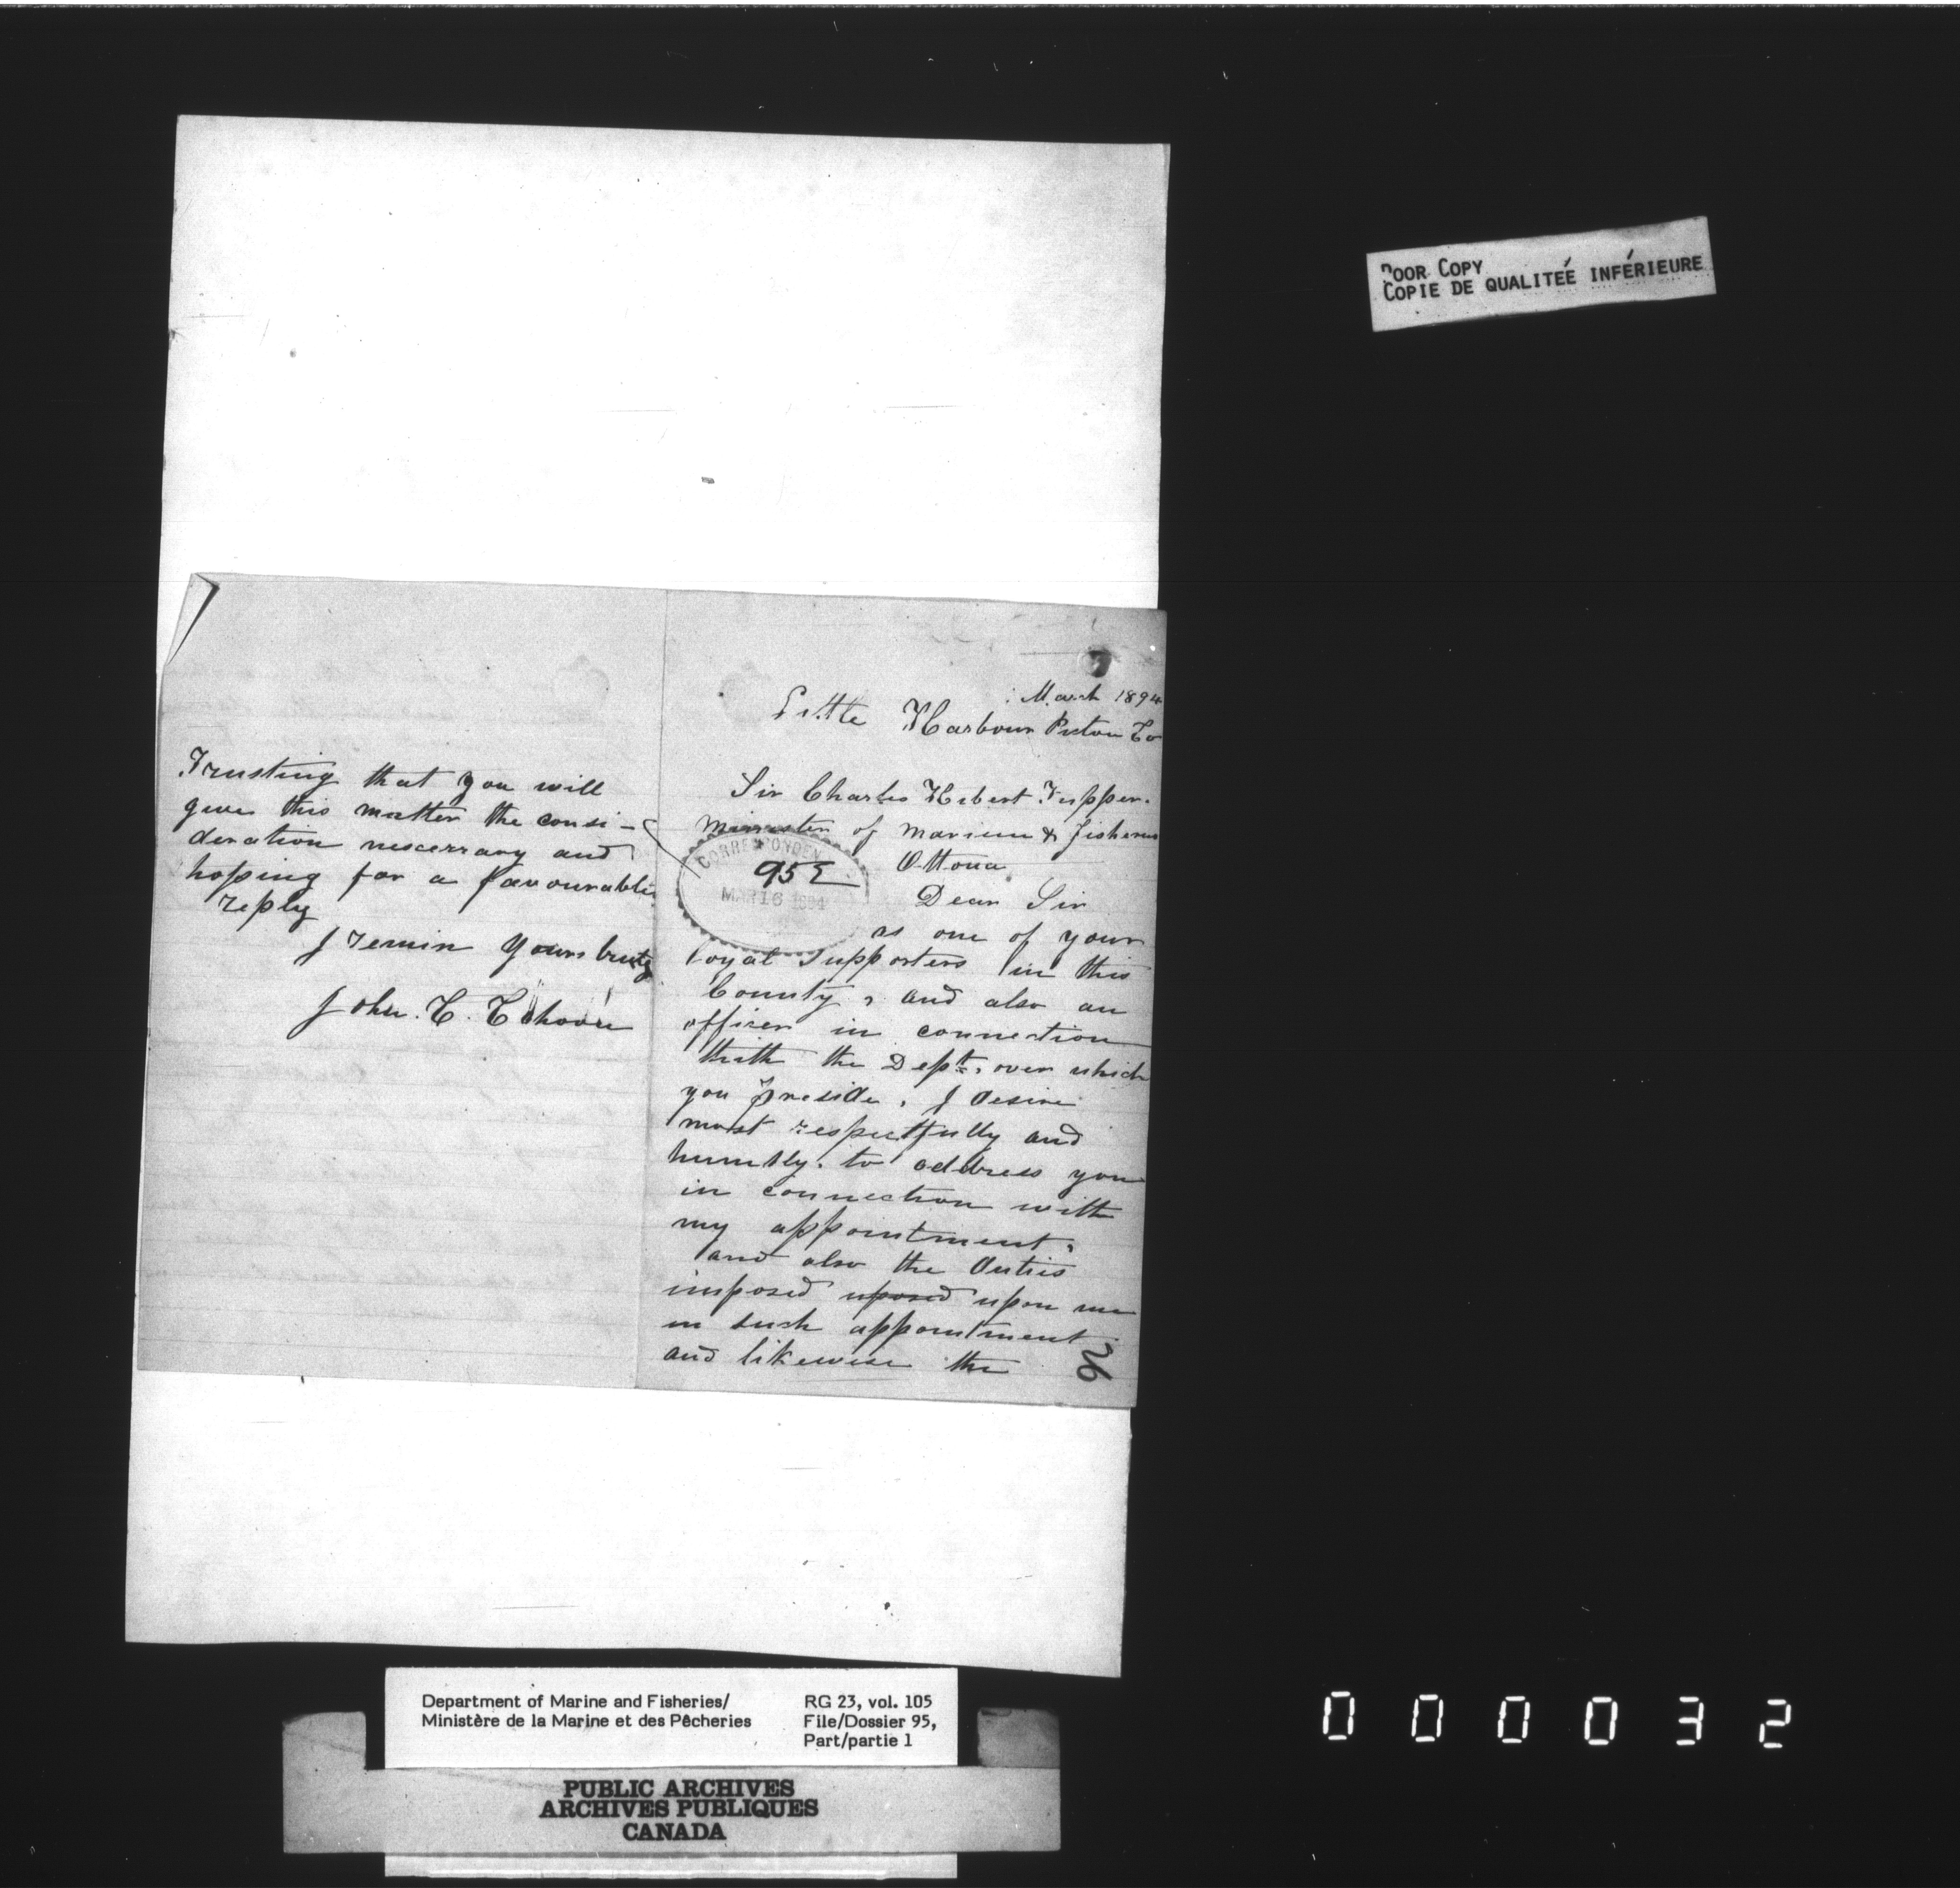 POOR COPY
COPIE DE QUALITEÉ INFÉRIEURE
March 1894
Little Harbour Pictou Co
Sir Charles Hibert Tupper.
Minister of Marine & Fisheries
Ottoua
CORRESPONDEN
95
MAR 16 1894
Dear Sir
as one of your
loyal supporters in this
County, and also an
officer in connection
with the Dept, over which
you preside, I desire
most respectfully and
humbly. to address you
in connection with
my appointment,
and also the duties
imposed uposed upon me
in such appointment
and likewise the
26
Trusting that you will
give this matter the consi-
deration nescerrary and
hoping for a favourable
reply
I remin yours truly
John. C.
Department of Marine and Fisheries/
Ministère de la Marine et des Pêcheries
RG 23, vol. 105
File/Dossier 95,
Part/partie 1
PUBLIC ARCHIVES
ARCHIVES PUBLIQUES
CANADA
000032